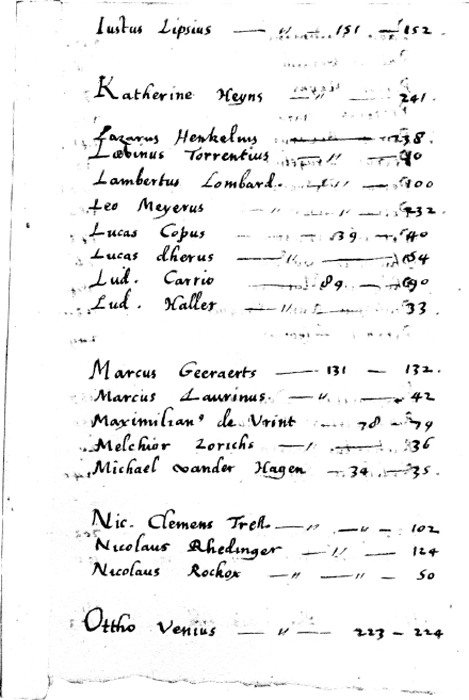 Iustus Lipsius — " — 151 — 152.
Katherine Heyns — " — 241.
Lazarus Henkelius — 238.
Læuinus Torrentius — " — 90
Lambertus Lombard. — " — 100
Leo Meyerus " — 232.
Lucas Copus — 39 — 40
Lucas dherus — " — 54
Lud. Carrio — 89 — 90
Lud. Haller — " — 33.
Marcus Geeraerts — 131 — 132.
Marcus Laurinus — " — 42
Maximilianꝰ de Vrint — 78 — 79
Melchior Zorichs — " — 36
Michael vander Hagen — 34 — 35.
Nic. Clemens Trel. — " — " — 102
Nicolaus Rhedinger — " — 124
Nicolaus Rockox — " — " — 50
Ottho Venius — " — 223 — 224